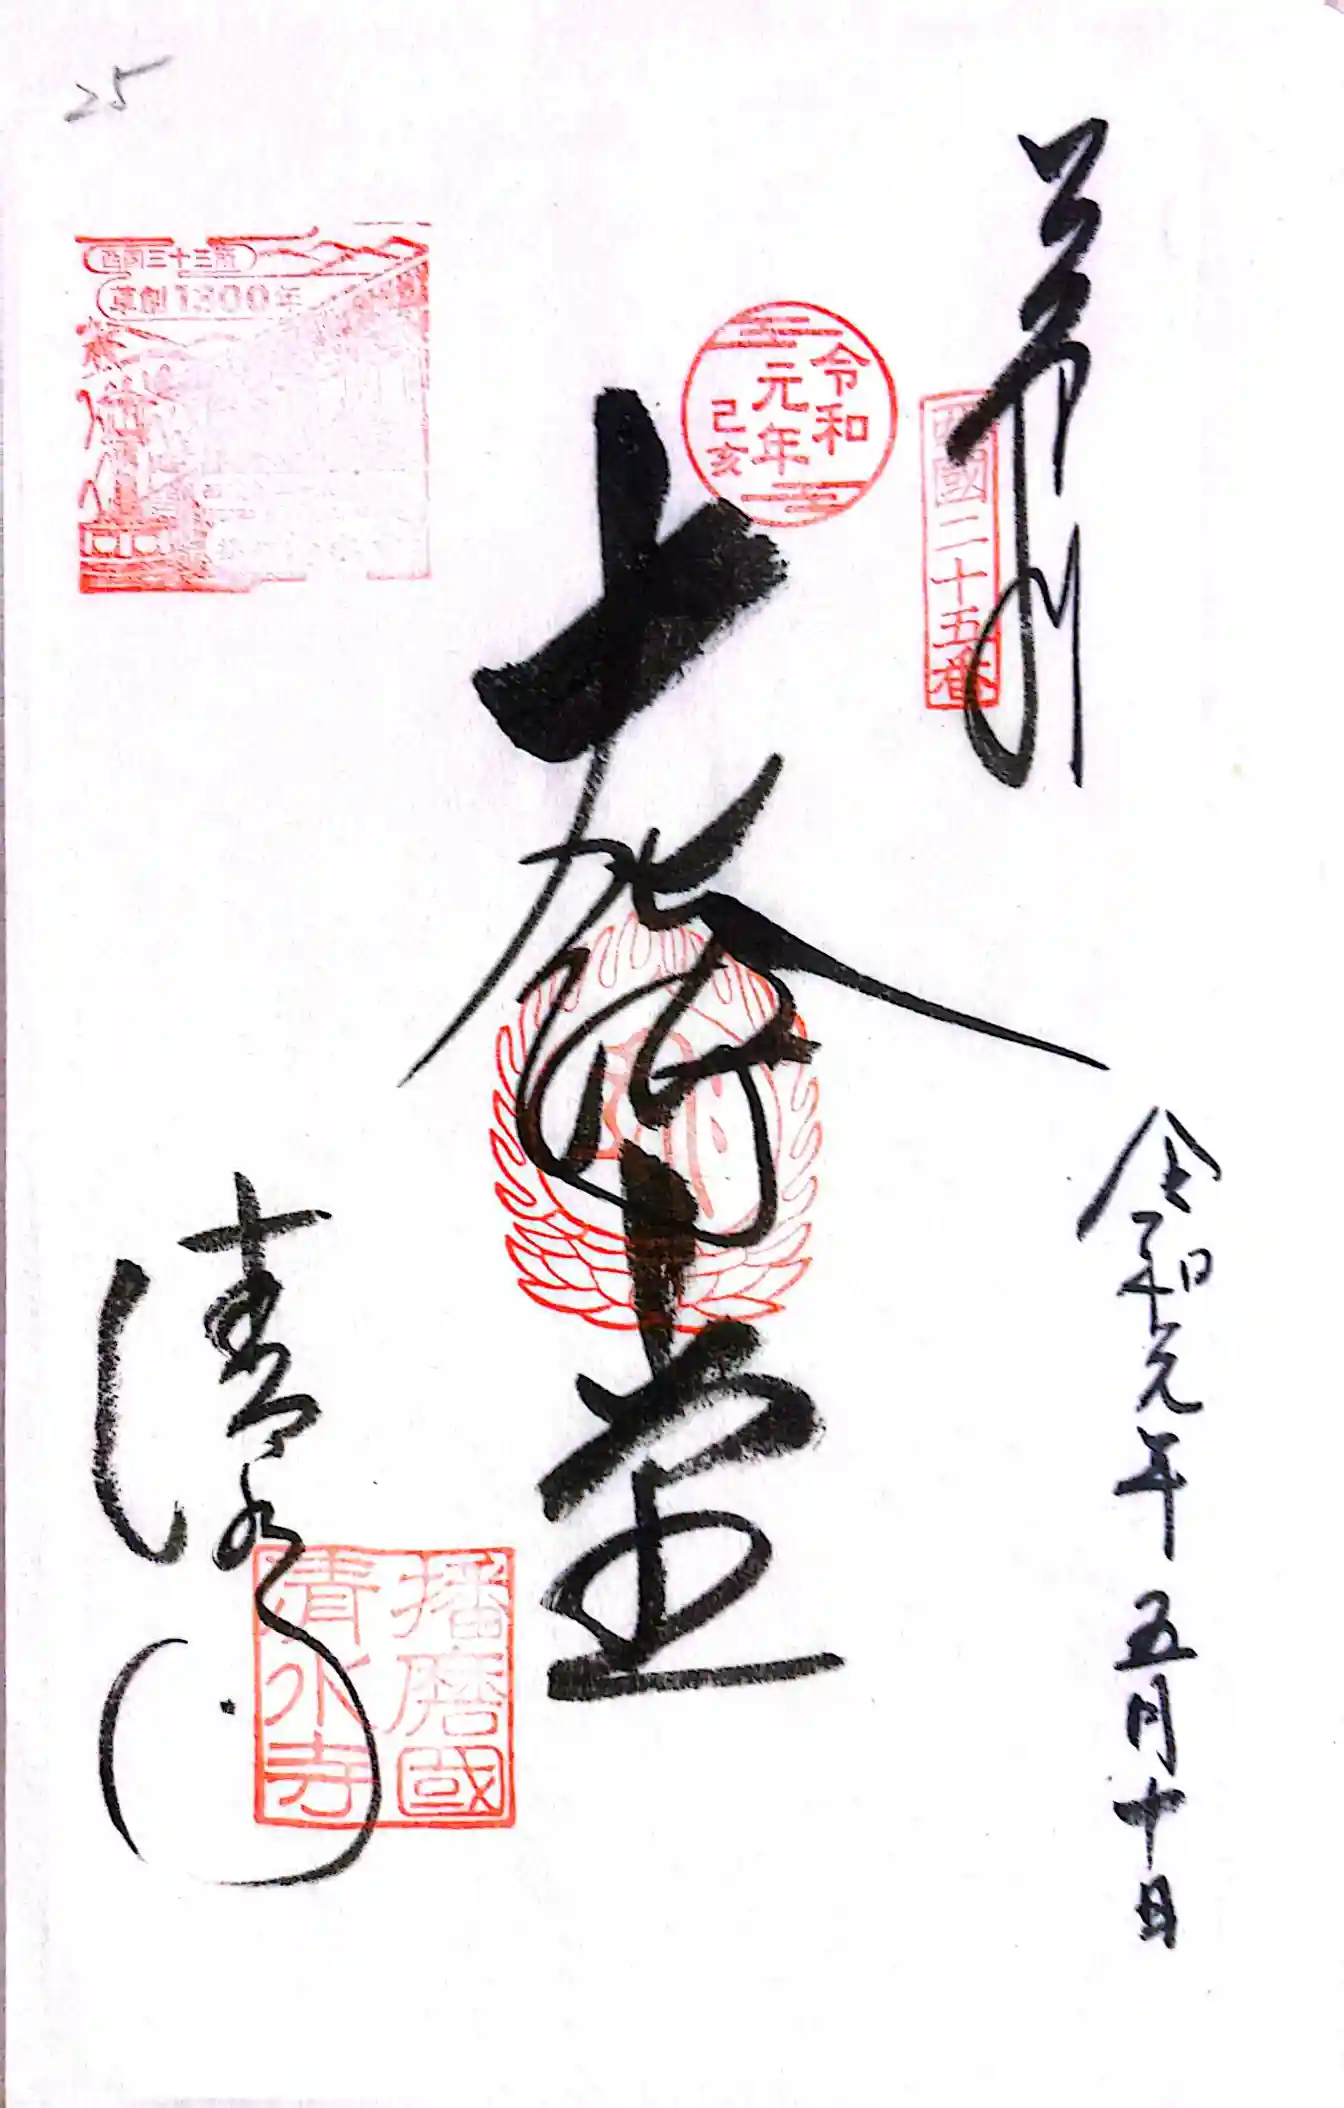 25
奉拝
西國二十五番
令和
元年
己亥
西国三十三所
草創1300年
大悲堂
令和元年五月十日
清水寺
播磨國
清水寺